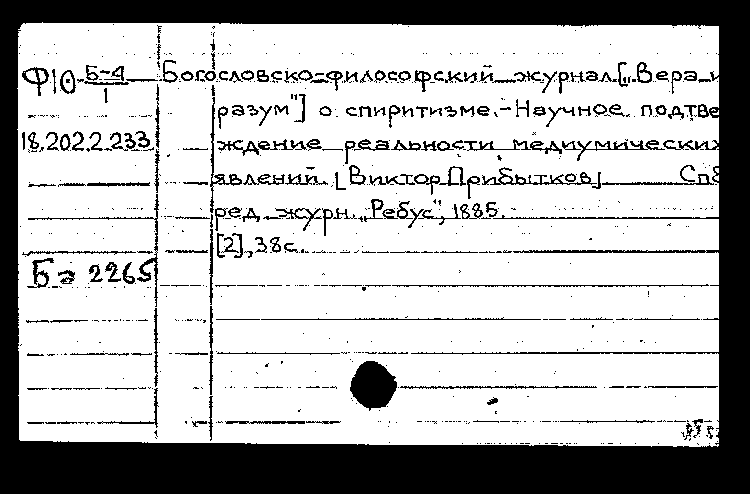 Ф10 Б-4/1 Богословско-философский журнал [„Вера и
разум"] о спиритизме.-Научное подтве
18.202.2.233 ждение реальности медиумических
явлений. [Виктор Прибытков] Спб
ред. журн. „Ребус", 1885.
[2], 38с.
Б-2265